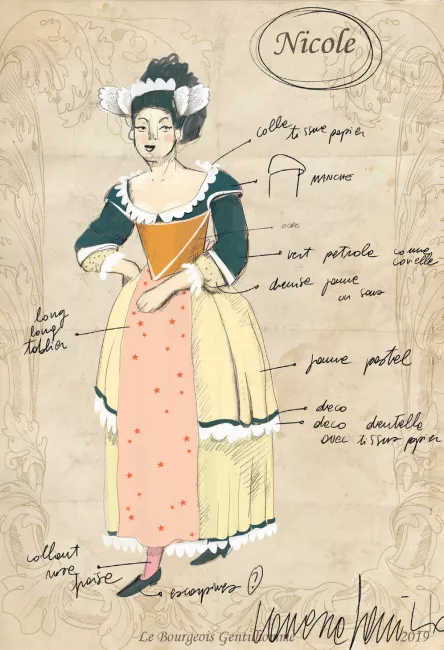 Nicole
colle tissus papier
MANCHE
ocre
vert petrole comme
covielle
chemise jaune
en sous
long
long
tablier
jaune pastel
deco
deco dentelle
avec tissus papier
collant
rose
escarpins
Le Bourgeois Gentilhomme
2019